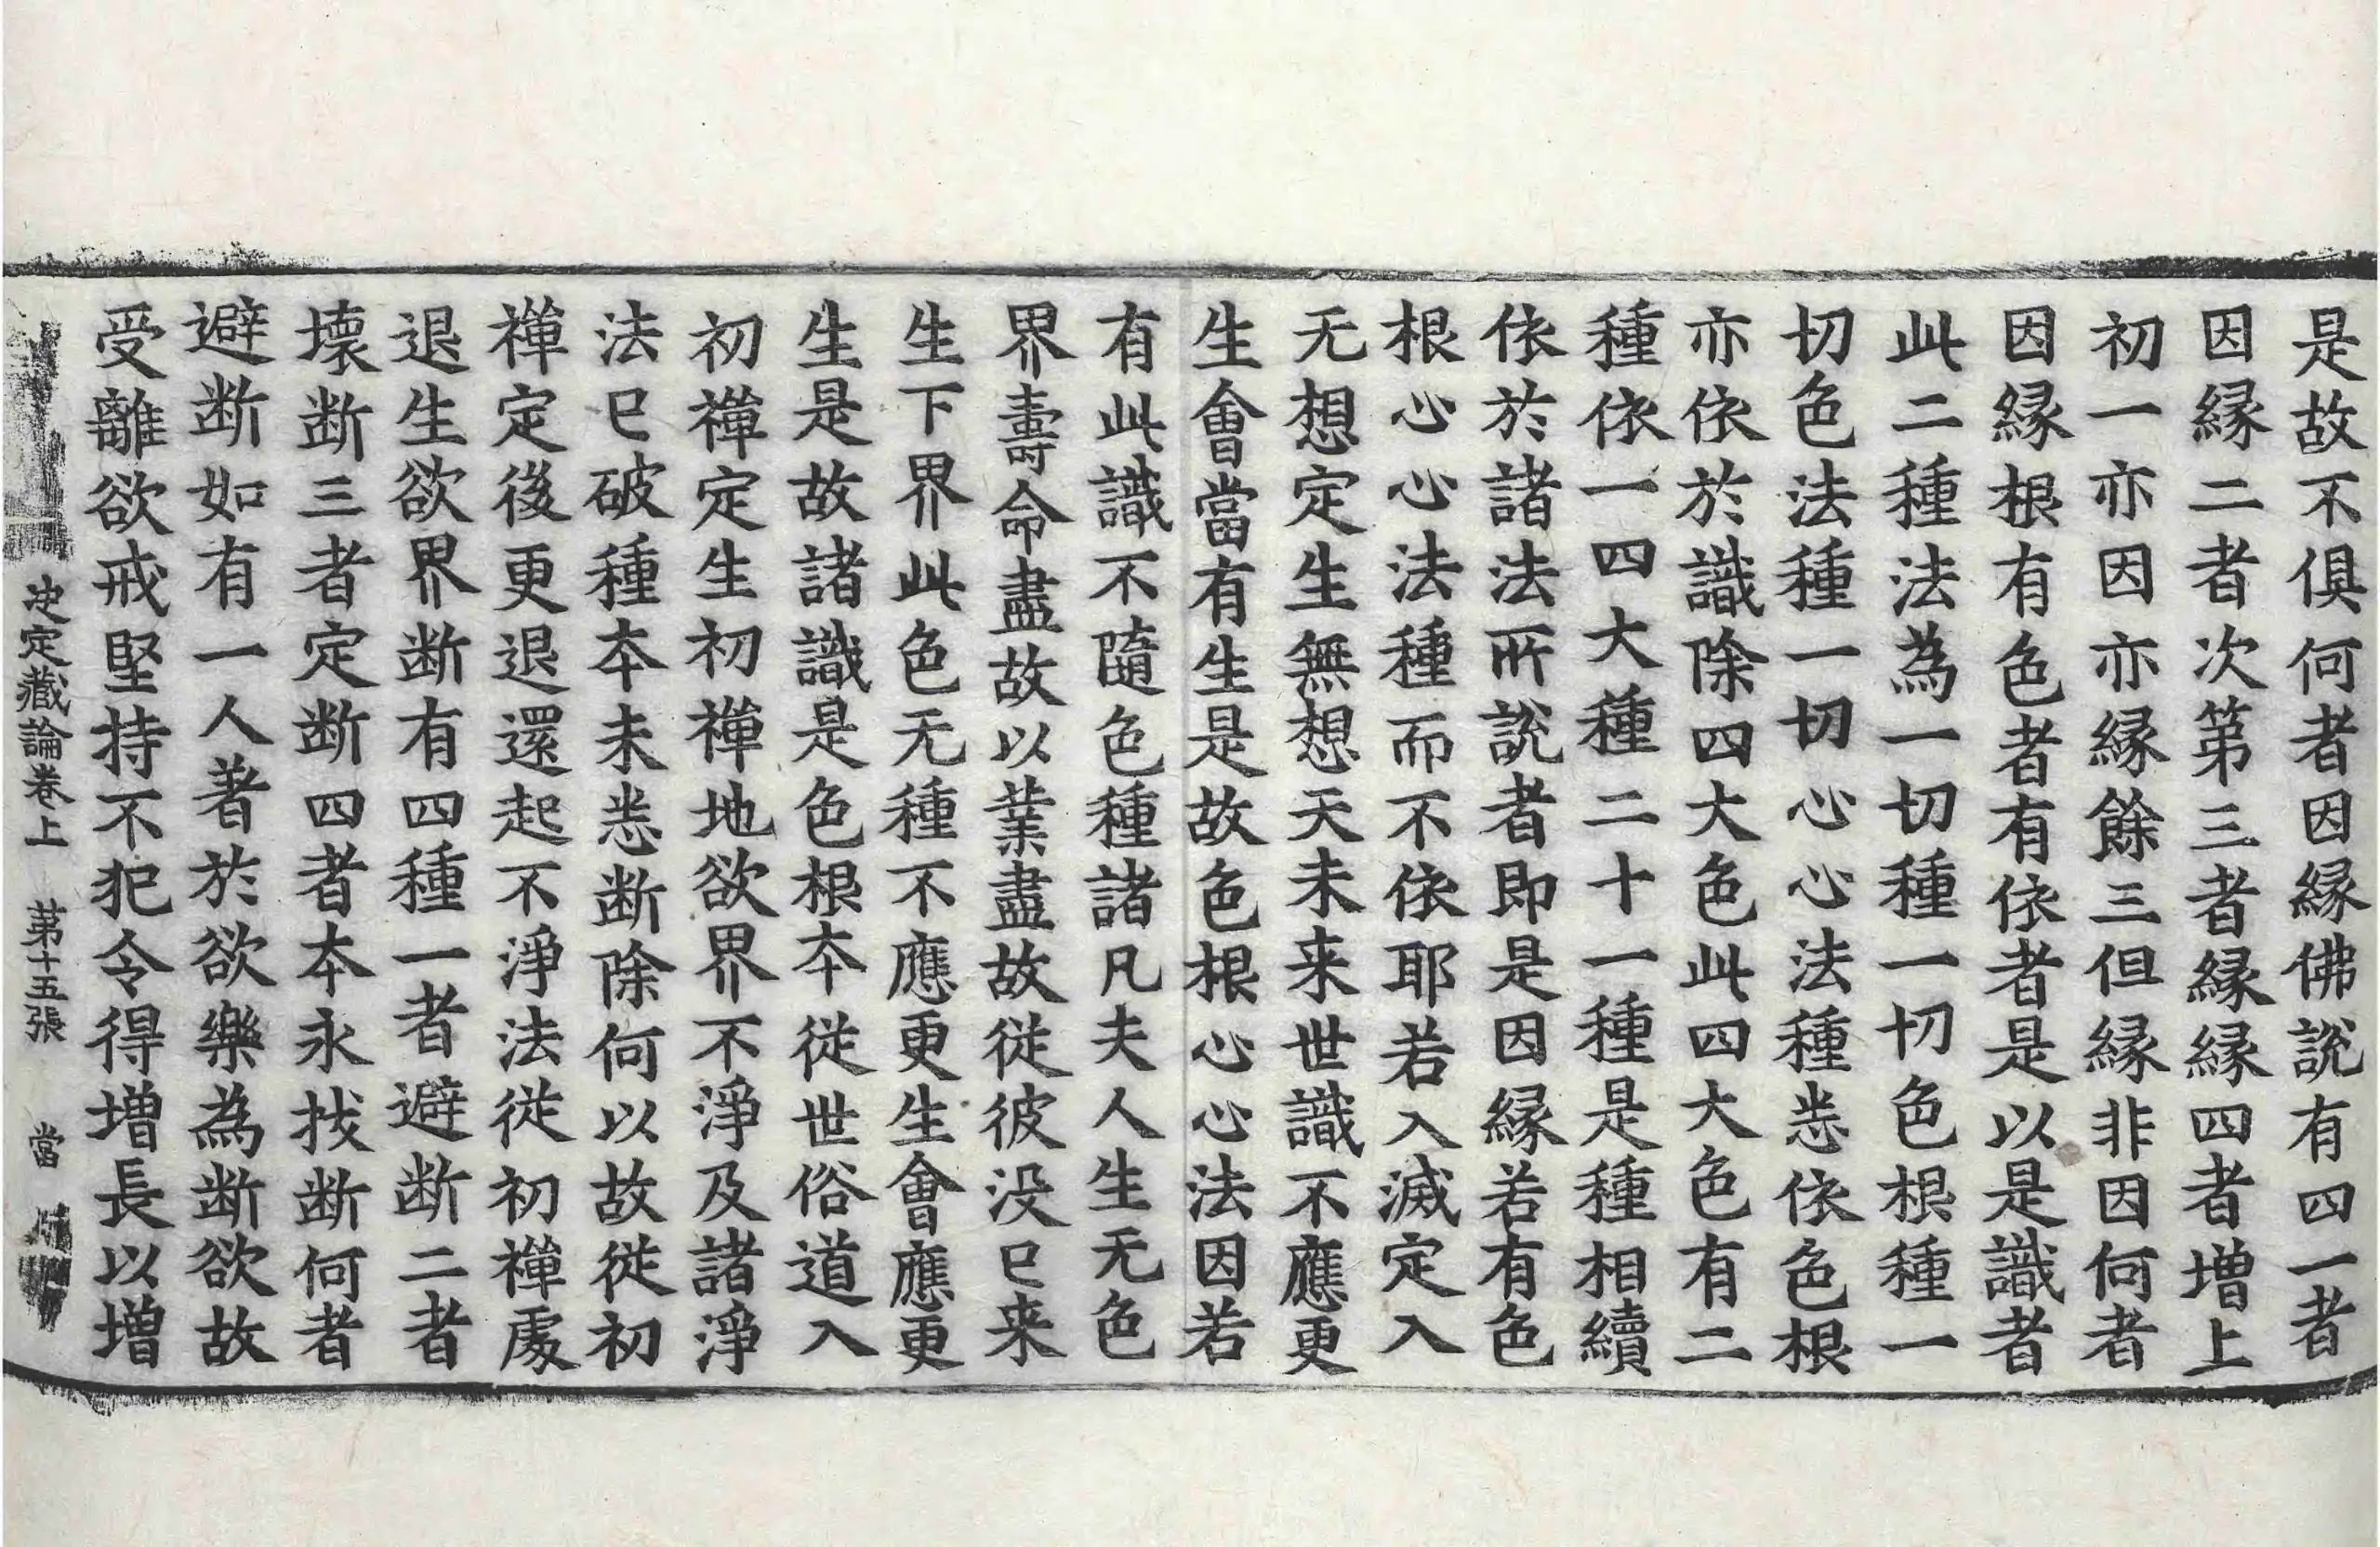 是故不俱何者因縁佛說有四一者
因縁二者次第三者縁縁四者增上
初一亦因亦縁餘三但縁非因何者
因縁根有色者有依者是以是識者
此二種法為一切種一切色根種一
切色法種一切心心法種悉依色根
亦依於識除四大色此四大色有二
種依一四大種二十一種是種相續
依於諸法所說者即是因縁若有色
根心心法種而不依耶若入滅定入
无想定生無想天未来世識不應更
生會當有生是故色根心心法因若
有此識不隨色種諸凡夫人生无色
界壽命盡故以業盡故從彼没已来
生下界此色无種不應更生會應更
生是故諸識是色根本從世俗道入
初禪定生初禪地欲界不淨及諸淨
法已破種本未悉断除何以故從初
禪定後更退還起不淨法從初禪處
退生欲界断有四種一者避断二者
壞断三者定断四者本永拔断何者
避断如有一人著於欲樂為断欲故
受離欲戒堅持不犯令得增長以增
决定藏論卷上　第十五張　當